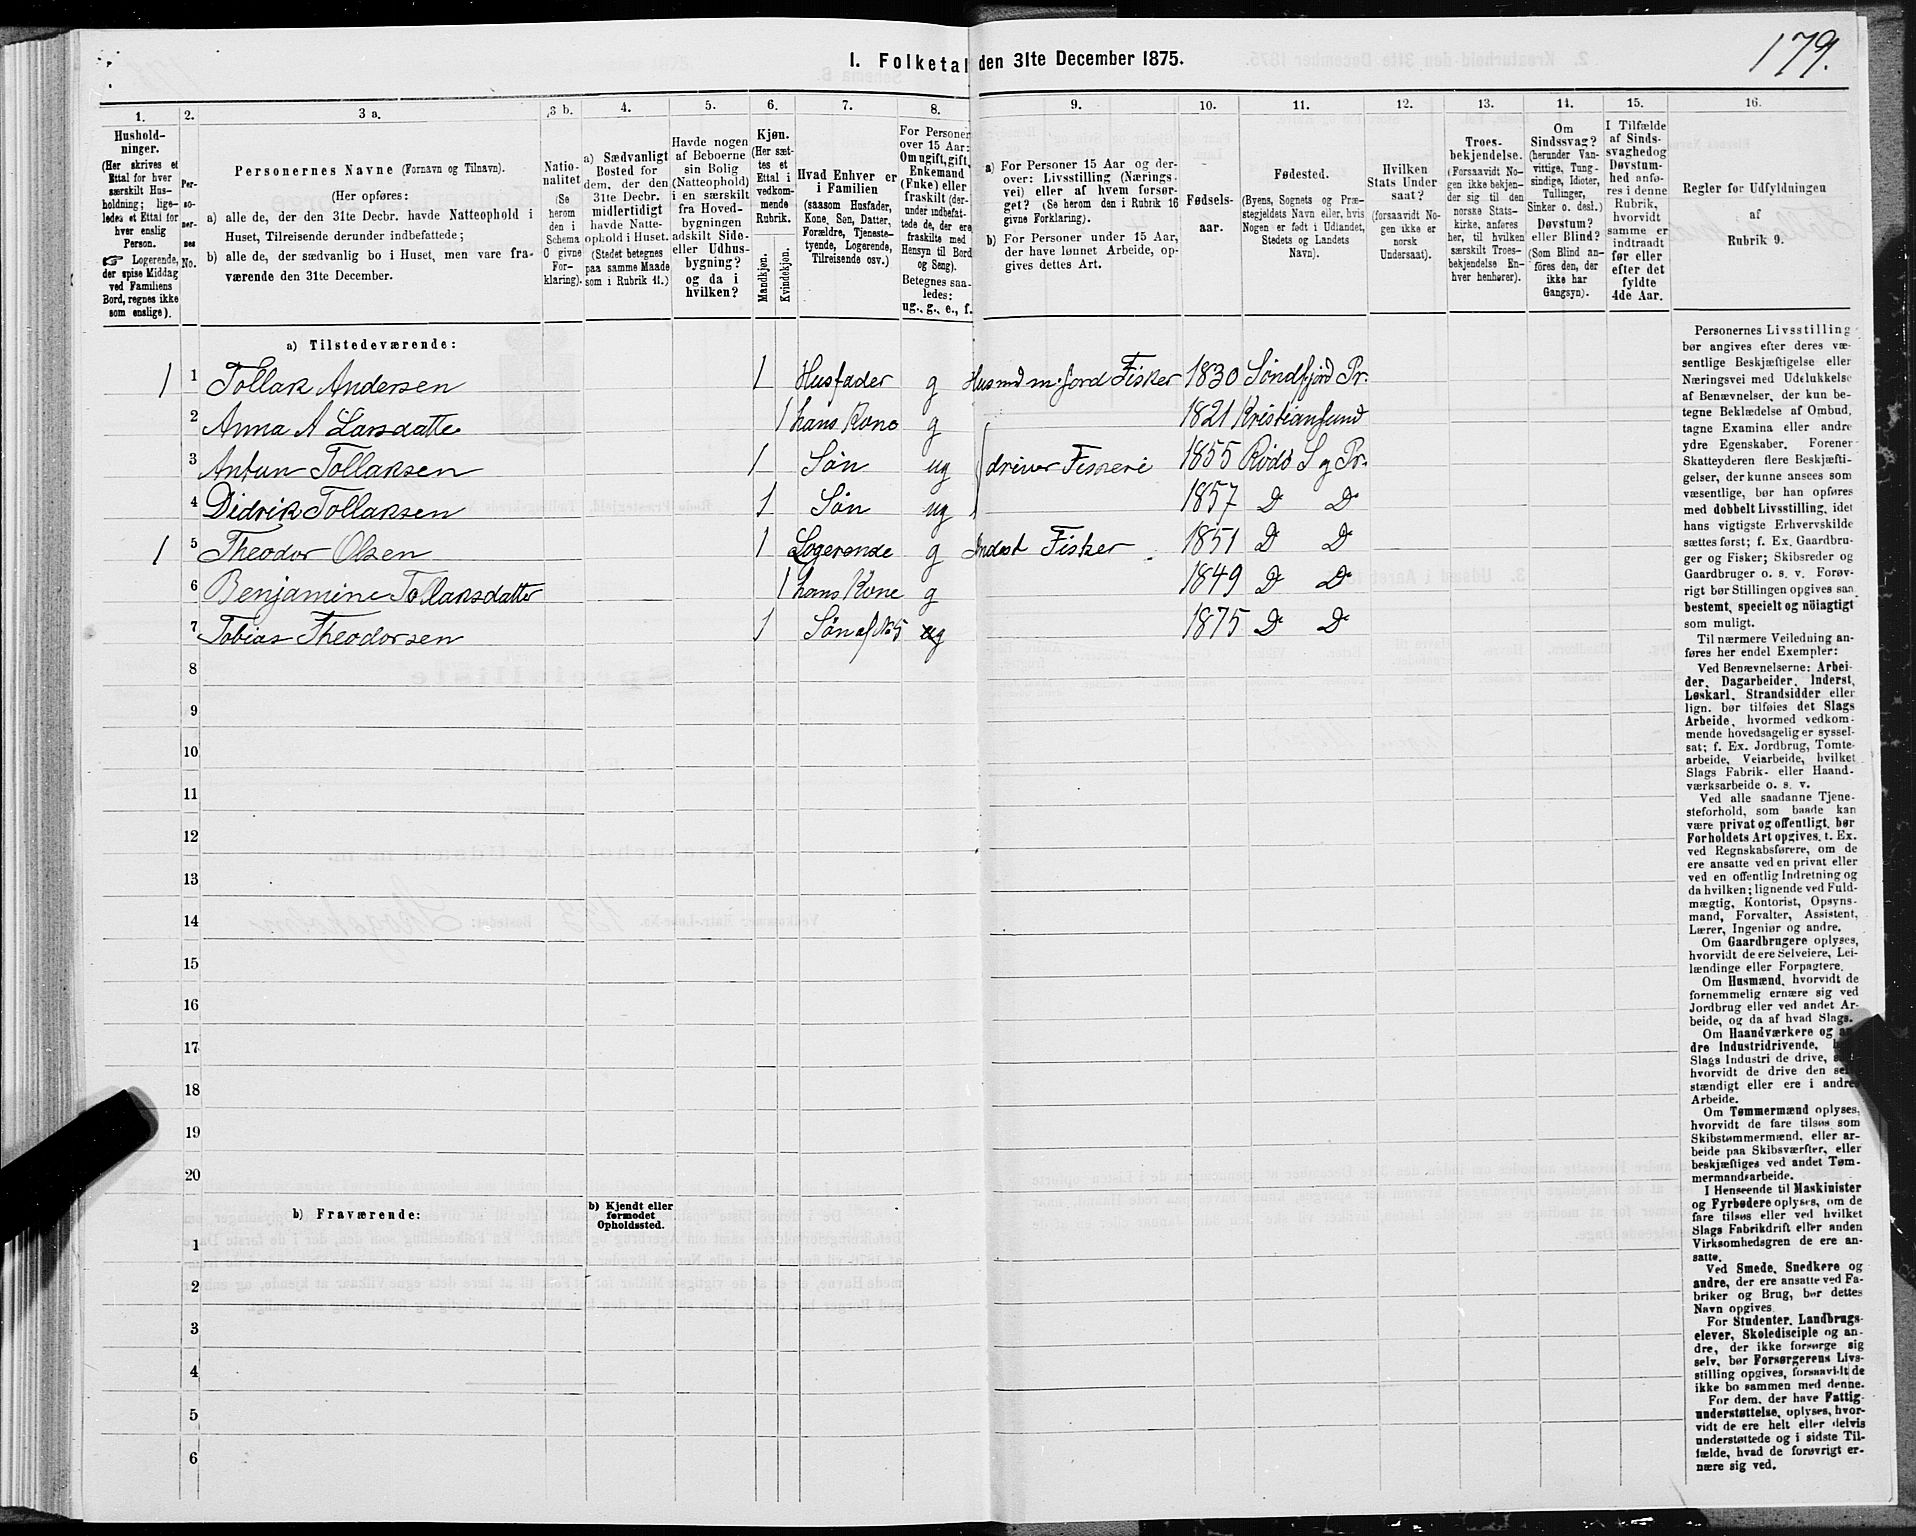 179.
I. Folketal den 31te December 1875.
1. 2. 3 a. 3 b. 4. 5. 6. 7. 8. 9. 10. 11. 12. 13. 14. 15. 16.
Hushold-
ninger.
(Her skrives et
Ettal for hver
særskilt Hus-
holdning; lige-
ledes et Ettal for
hver enslig
Person.
☞ Logerende,
der spise Middag
ved Familiens
Bord, regnes ikke
som enslige).
Per-
so-
ner-
nes
No.
Personernes Navne (Fornavn og Tilnavn).
(Her opføres:
a) alle de, der den 31te Decbr. havde Natteophold i
Huset, Tilreisende derunder indbefattede;
b) alle de, der sædvanlig bo i Huset, men vare fra-
værende den 31te December.
Natio-
nalitet
(Se
herom
den i
Schema
C givne
For-
klaring).
a) Sædvanligt
Bosted for
dem, der den
31te Decbr.
midlertidigt
havde Natte-
ophold i Huset.
(Stedet betegnes
paa samme Maade
som i Rubrik 11.)
Havde nogen
af Beboerne
sin Bolig
(Natteophold)
i en særskilt
fra Hoved-
bygningen
adskilt Side-
eller Udhus-
bygning?
og da i
hvilken?
Kjøn.
(Her sæt-
tes et
Ettal i
vedkom-
mende
Rubrik.
Mandkjøn.
Kvindekjøn.
Hvad Enhver er
i Familien
(saasom Husfader,
Kone, Søn, Datter,
Forældre, Tjeneste-
tyende, Logerende,
Tilreisende osv.)
For Personer
over 15 Aar:
Om ugift, gift,
Enkemand
(Enke) eller
fraskilt (der-
under indbefat-
tede de, der ere
fraskilte med
Hensyn til Bord
og Seng).
Betegnes saa-
ledes:
ug., g., e., f.
a) For Personer 15 Aar og der-
over: Livsstilling (Nærings-
vei) eller af hvem forsør-
get? (Se herom den i Rubrik 16
givne Forklaring).
b) For Personer under 15 Aar,
der have lønnet Arbeide, op-
gives dettes Art.
Fødsels-
aar.
Fødested.
(Byens, Sognets og Præ-
stegjeldets Navn eller, hvis
Nogen er født i Udlandet,
Stedets og Landets
Navn).
Hvilken
Stats Under
saat?
(forsaavidt No-
gen ikke er
norsk
Undersaat).
Troes-
bekjendelse.
(Forsaavidt No-
gen ikke bekjen-
der sig til den
norske Stats-
kirke, anføres
her, til hvilken
særskilt Troes-
bekjendelse En-
hver henhører).
Om
Sindssvag?
(herunder Van-
vittige, Tung-
sindige, Idioter,
Tullinger,
Sinker o. desl.)
Døvstum?
eller Blind?
(Som Blind an-
føres den, der
ikke har
Gangsyn).
I Tilfælde
af Sinds-
svaghed og
Døvstum-
hed anfø-
res i denne
Rubrik,
hvorvidt
samme er
indtraadt
før eller
efter det
fyldte
4de Aar.
Regler for Udfyldningen
af
Rubrik 9.
a) Tilstedeværende:
1 1 Tollak Andersen 1 Husfader g Husmd m. jord Fisker 1830 Søndfjord Pr.
2 Anna A Larsdatte 1 hans Kone g 1821 Kristiansund
3 Antun Tollaksen 1 Søn ug driver Fiskeri 1855 Rødø S g Pr.
4 Didrik Tollaksen 1 Søn ug 1857 D D
1 5 Theodor Olsen 1 Logerende g Inderst Fisker 1851 D D
6 Benjamine Tollaksdatter 1 hans Kone g 1849 D D
7 Tobias Theodorsen 1 Søn af No 5 ug 1875 D D
8
9
10
11
12
13
14
15
16
17
18
19
20
b) Fraværende:
b) Kjendt eller
formodet
Opholdssted.
1
2
3
4
5
6
Personernes Livsstilling
bør angives efter deres væ-
sentlige Beskjæftigelse eller
Næringsvei med Udelukkelse
af Benævnelser, der kun be-
tegne Beklædelse af Ombud,
tagne Examina eller andre
ydre Egenskaber. Forener
Skatteyderen flere Beskjæfti-
gelser, der kunne ansees som
væsentlige, bør han opføres
med dobbelt Livsstilling, idet
hans vigtigste Erhvervskilde
sættes først; f. Ex. Gaardbru-
ger og Fisker; Skibsreder og
Gaardbruger o. s. v. Forøv-
rigt bør Stillingen opgives saa
bestemt, specielt og nöiagtigt
som muligt.
Til nærmere Veiledning an-
føres her endel Exempler:
Ved Benævnelserne: Arbei-
der, Dagarbeider, Inderst,
Løskarl, Strandsidder eller
lign. bør tilføies det Slags
Arbeide, hvormed vedkom-
mende hovedsagelig er syssel-
sat; f. Ex. Jordbrug, Tomte-
arbeide, Veiarbeide, hvilket
Slags Fabrik- eller Haand-
værksarbeide o. s. v.
Ved alle saadanne Tjene-
steforhold, som baade kan
være privat og offentligt, bør
Forholdets Art opgives, t. Ex.
ved Regnskabsførere, om de
ere ansatte ved en privat eller
ved en offentlig Indretning og
da hvilken; lignende ved Fuld-
mægtig, Kontorist, Opsyns-
mand, Forvalter, Assistent,
Lærer, Ingeniør og andre.
Om Gaardbrugere oplyses,
hvorvidt de ere Selveiere, Lei-
lændinge eller Forpagtere.
Om Husmænd, hvorvidt de
fornemmelig ernære sig ved
Jordbrug eller ved andet Ar-
beide, og da af hvad Slags.
Om Haandværkere og an-
dre Industridrivende,
Slags Industri de drive,
hvorvidt de drive den sel-
stændigt eller ere i andres
Arbeide.
Om Tømmermænd oplyses,
hvorvidt de fare tilsøs som
Skibstømmermænd, eller ar-
beide paa Skibsværfter, eller
beskjæftiges ved andet Tøm-
mermandsarbeide.
I Henseende til Maskinister
og Fyrbødere oplyses, om de
fare tilsøs eller ved hvilket
Slags Fabrikdrift eller anden
Virksomhedsgren de ere an-
satte.
Ved Smede, Snedkere og
andre, der ere ansatte ved Fa-
briker og Brug, bør dettes
Navn opgives.
For Studenter, Landbrugs-
elever, Skoledisciple og an-
dre, der ikke forsørge sig
selv, bør Forsørgerens Livs-
stilling opgives, forsaavidt de
ikke bo sammen med denne.
For dem, der have Fattig-
understøttelse, oplyses, hvor-
vidt de ere helt eller delvis
understøttede og i sidste Til-
fælde, hvad de forøvrigt er-
nære sig ved.